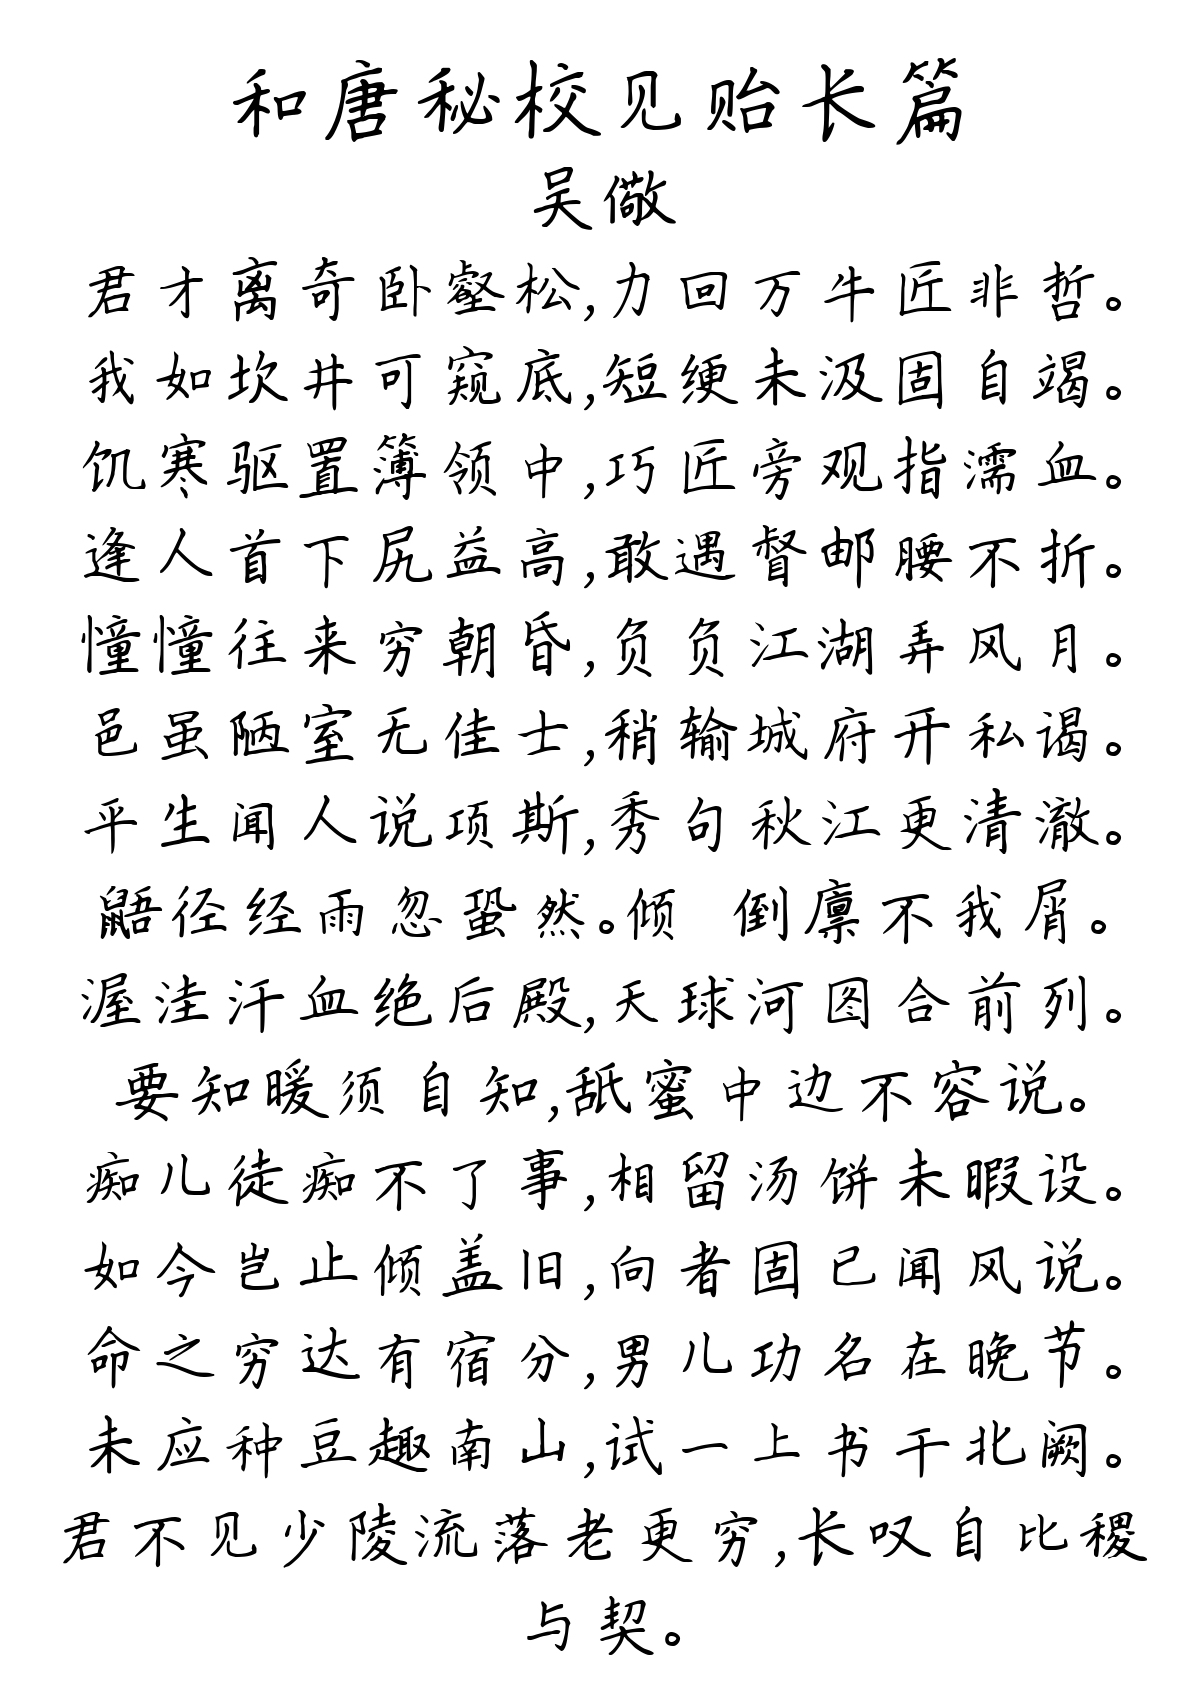 和唐秘校见贻长篇
吴儆
君才离奇卧壑松,力回万牛匠非哲。
我如坎井可窥底,短绠未汲固自竭。
饥寒驱置簿领中,巧匠旁观指濡血。
逢人首下尻益高,敢遇督邮腰不折。
憧憧往来穷朝昏,负负江湖弄风月。
邑虽陋室无佳士,稍输城府开私谒。
平生闻人说项斯,秀句秋江更清澈。
鼯径经雨忽蛩然。倾 倒廪不我屑。
渥洼汗血绝后殿,天球河图合前列。
要知暖须自知,舐蜜中边不容说。
痴儿徒痴不了事,相留汤饼未暇设。
如今岂止倾盖旧,向者固已闻风说。
命之穷达有宿分,男儿功名在晚节。
未应种豆趣南山,试一上书干北阙。
君不见少陵流落老更穷,长叹自比稷
与契。